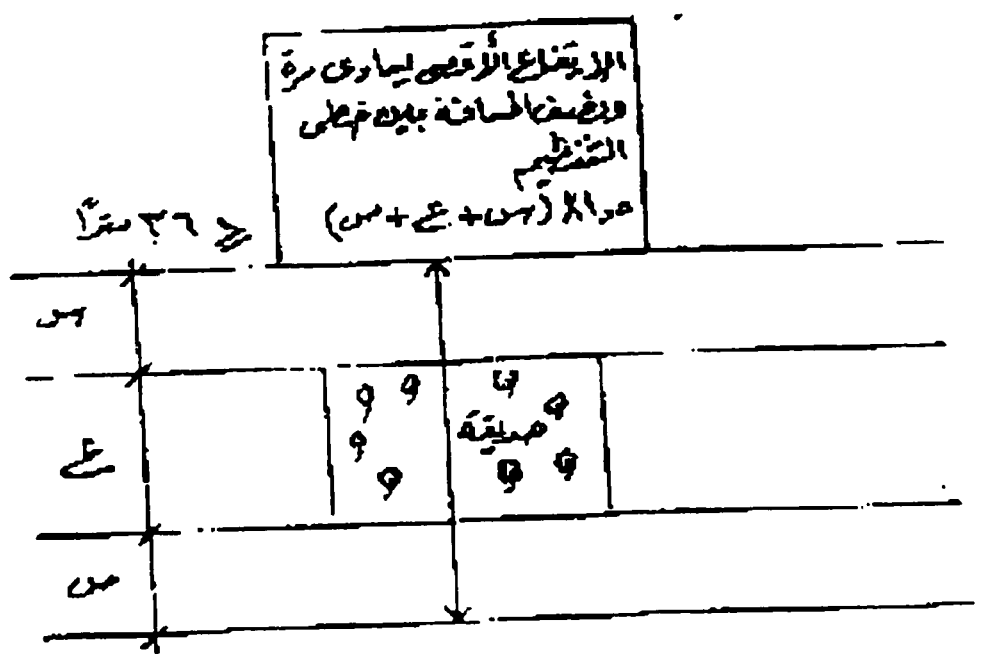 الإرتفاع الأقصى يساوى مرة
ونصف المسافة بين خطى
التنظيم
١,٥ X (س + ع + ص)
≯ ٣٦ متراً
س
ع
حديقة
ص